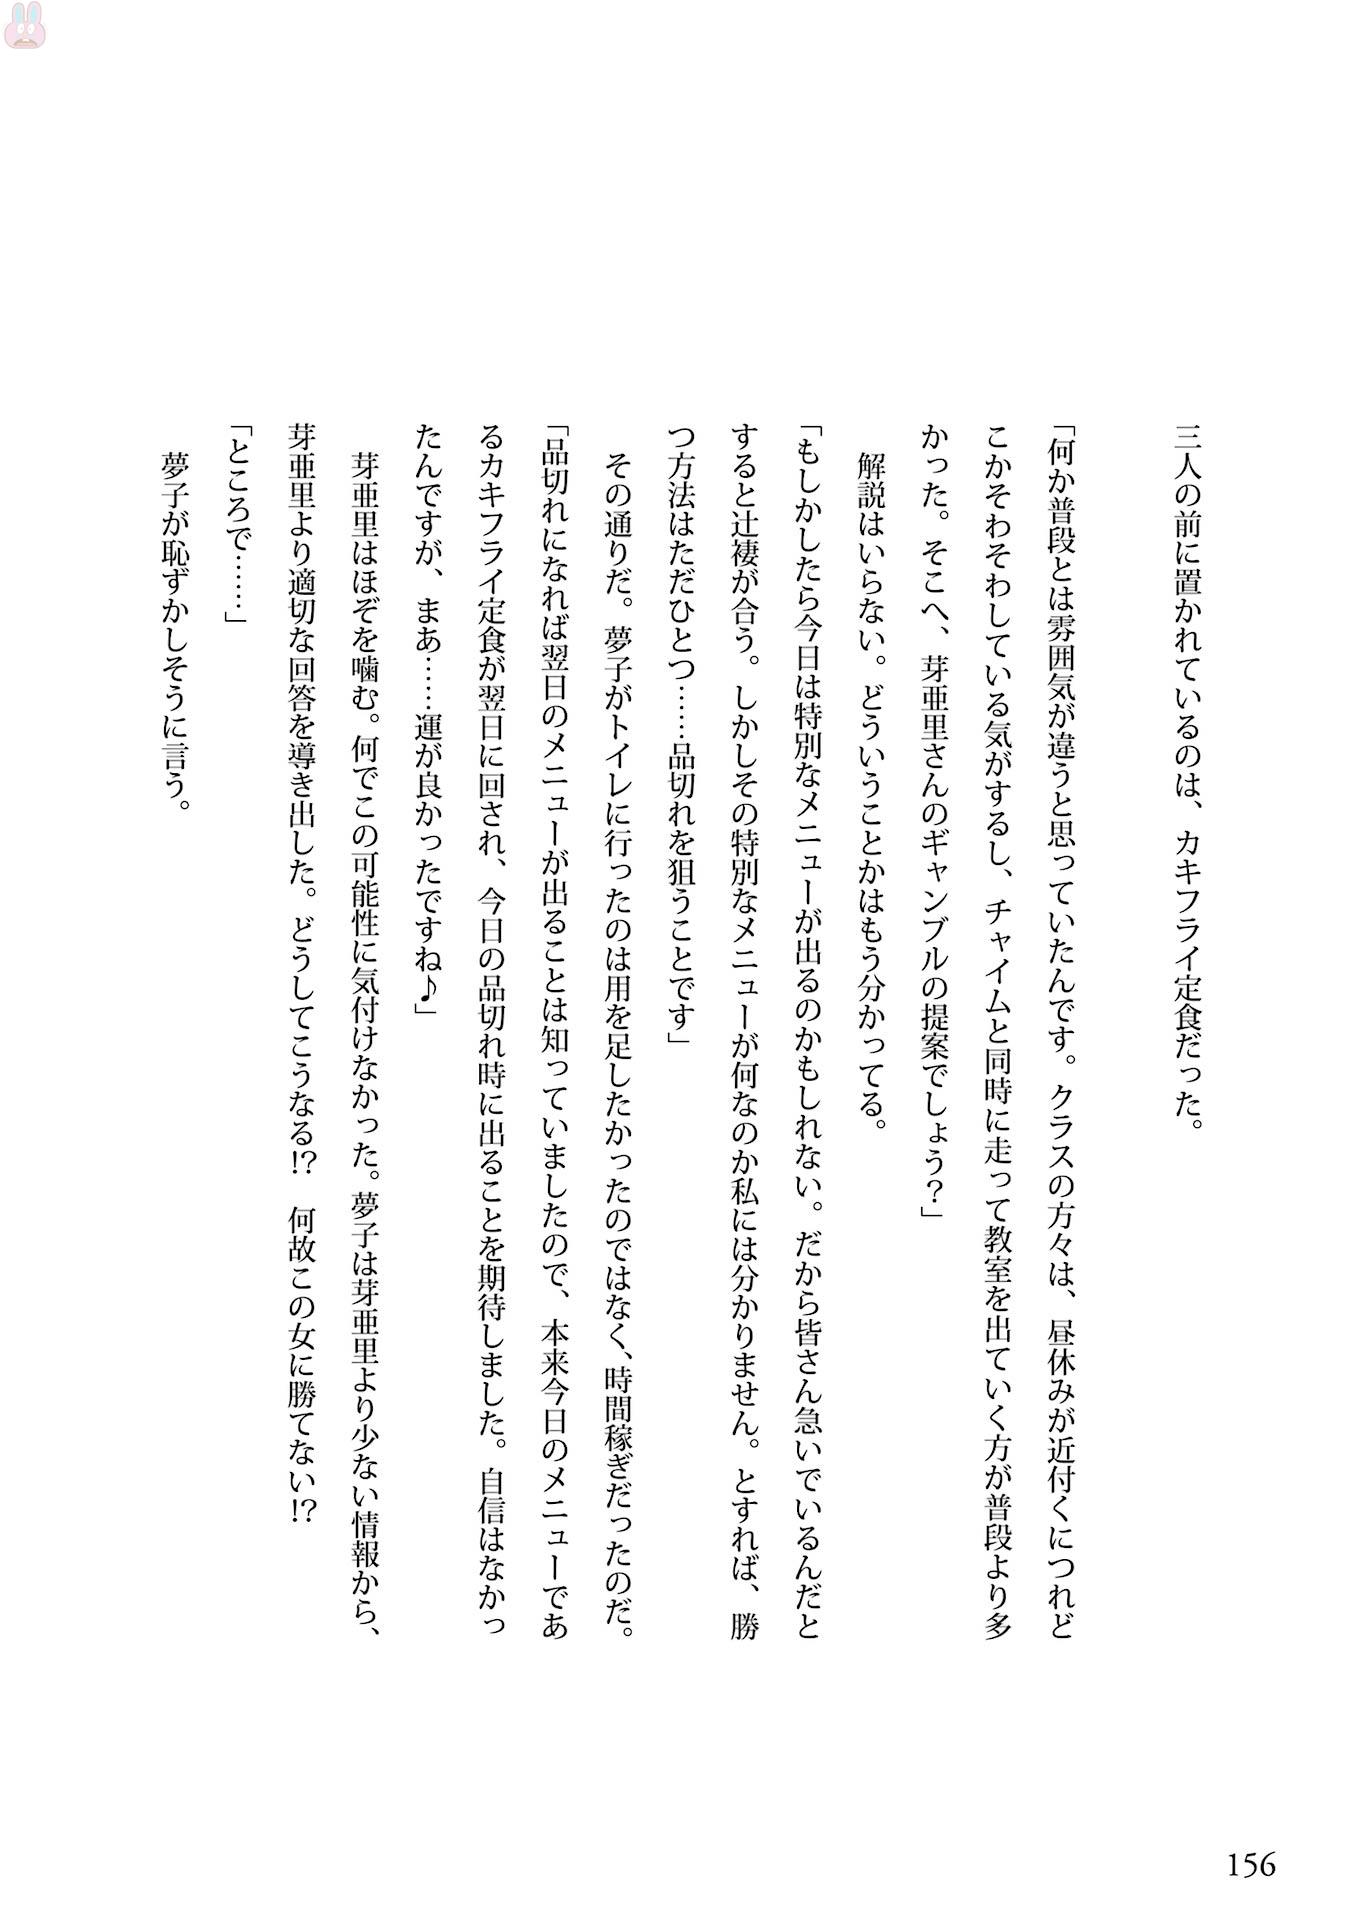 三人の前に置かれているのは、カキフライ定食だった。
「何か普段とは雰囲気が違うと思っていたんです。クラスの方々は、昼休みが近付くにつれど
こかそわそわしている気がするし、チャイムと同時に走って教室を出ていく方が普段より多
かった。そこへ、芽亜里さんのギャンブルの提案でしょう？」
解説はいらない。どういうことかはもう分かってる。
「もしかしたら今日は特別なメニューが出るのかもしれない。だから皆さん急いでいるんだと
すると辻褄が合う。しかしその特別なメニューが何なのか私には分かりません。とすれば、勝
つ方法はただひとつ……品切れを狙うことです」
その通りだ。夢子がトイレに行ったのは用を足したかったのではなく、時間稼ぎだったのだ。
「品切れになれば翌日のメニューが出ることは知っていましたので、本来今日のメニューであ
るカキフライ定食が翌日に回され、今日の品切れ時に出ることを期待しました。自信はなかっ
たんですが、まあ……運が良かったですね♪」
芽亜里はほぞを噛む。何でこの可能性に気付けなかった。夢子は芽亜里より少ない情報から、
芽亜里より適切な回答を導き出した。どうしてこうなる!?　何故この女に勝てない!?
「ところで……」
夢子が恥ずかしそうに言う。
156